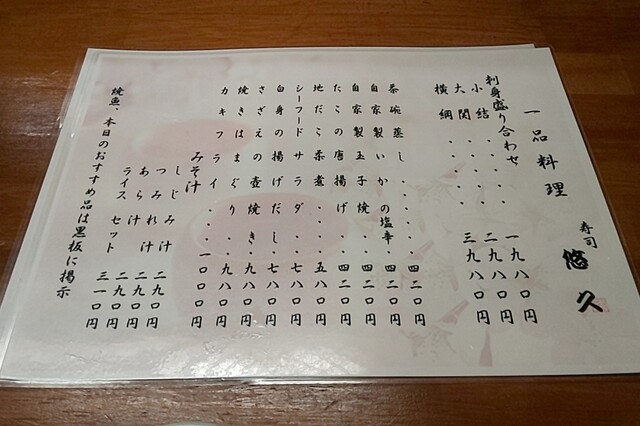 寿司 悠久
一品料理
刺身盛り合わせ
小結・・・・・一九八〇円
大関・・・・・二九八〇円
横綱・・・・・三九八〇円
茶碗蒸し・・・・・四二〇円
自家製いかの塩辛・四二〇円
自家製玉子焼・・・四二〇円
たこの唐揚げ・・・四二〇円
地だこ柔煮・・・・五八〇円
シーフードサラダ・・七八〇円
白身の揚げだし・・七八〇円
さざえの壺焼き・・九八〇円
焼きはまぐり・・・九八〇円
カキフライ・・・一〇〇〇円
みそ汁
しじみ汁 二九〇円
つみれ汁 二九〇円
あら汁 二九〇円
ライスセット 三一〇円
焼魚、本日のおすすめ品は黒板に掲示